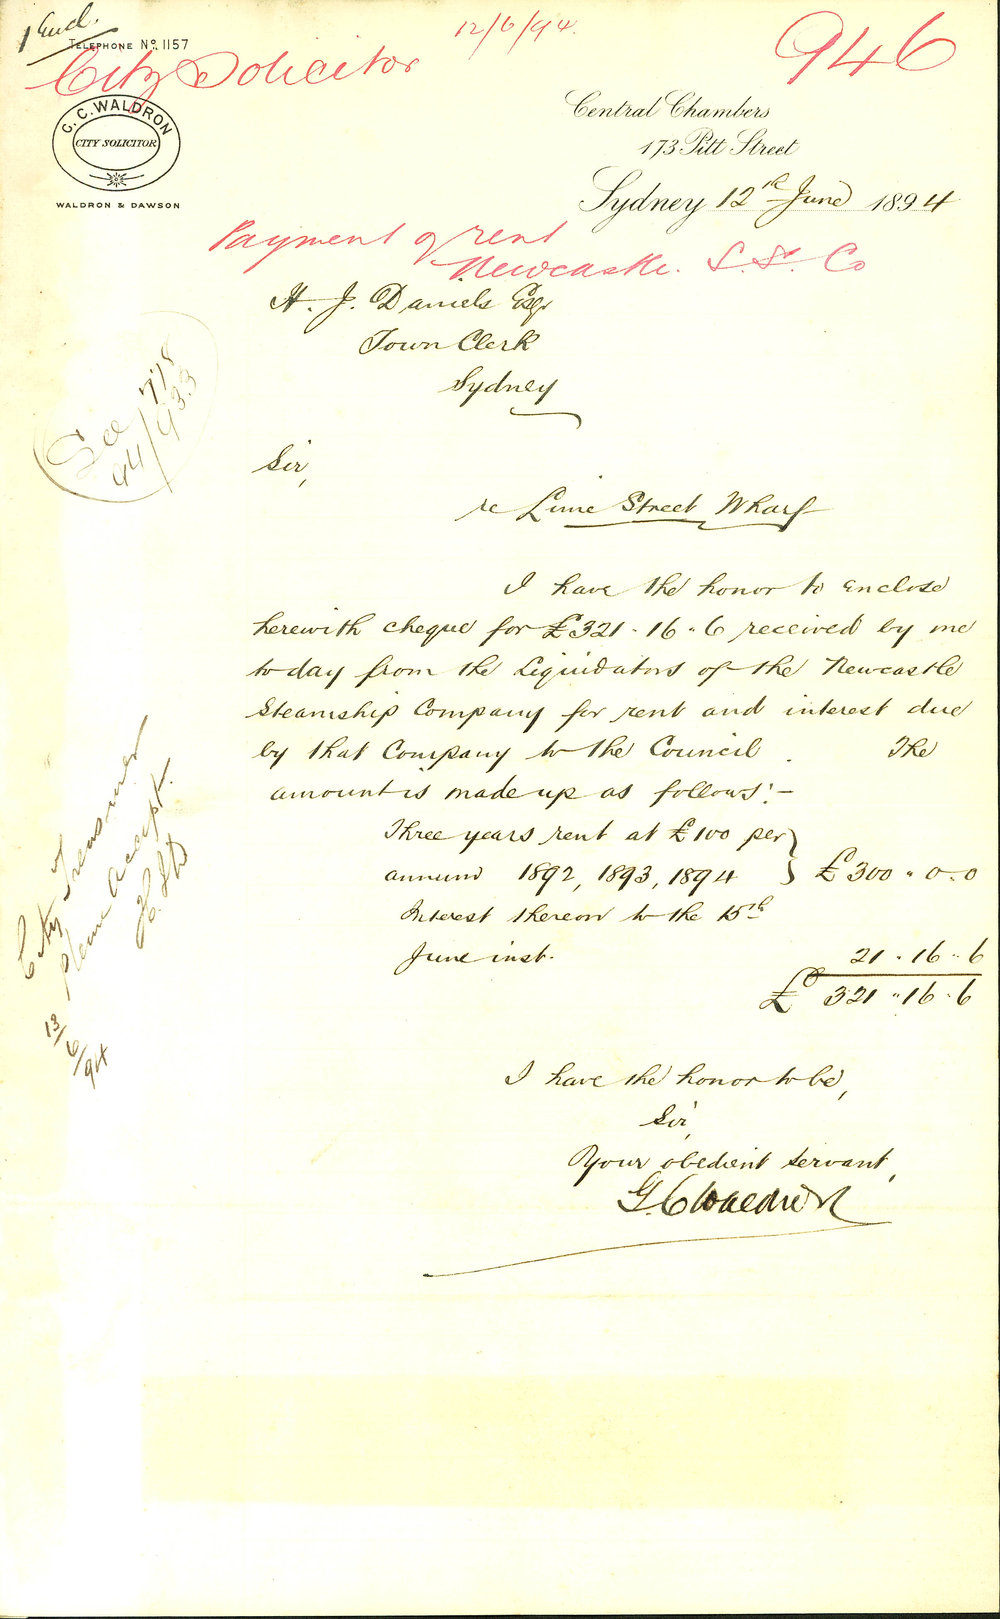 1 Encl.
TELEPHONE No. 1157
12/6/94.
946
City Solicitor
G. C. WALDRON
CITY SOLICITOR
WALDRON & DAWSON
Central Chambers
173 Pitt Street
Sydney 12th June 1894
Payment of rent
Newcastle. S.S. Co
H. J. Daniels Esqr
Town Clerk
Sydney
See 778
44/93.3
Sir,
re Lime Street Wharf
I have the honor to enclose
herewith cheque for £321.16.6 received by me
to day from the Liquidators of the Newcastle
Steamship Company for rent and interest due
by that Company to the Council. The
amount is made up as follows:-
Three years rent at £100 per
annum 1892, 1893, 1894 } £300 " 0. 0
Interest thereon to the 15th
June inst. 21 . 16 . 6
£ 321 " 16 . 6
City Treasurer
please accept.
13/6/94
I have the honor to be,
Sir,
Your obedient servant,
G. C. Waldron